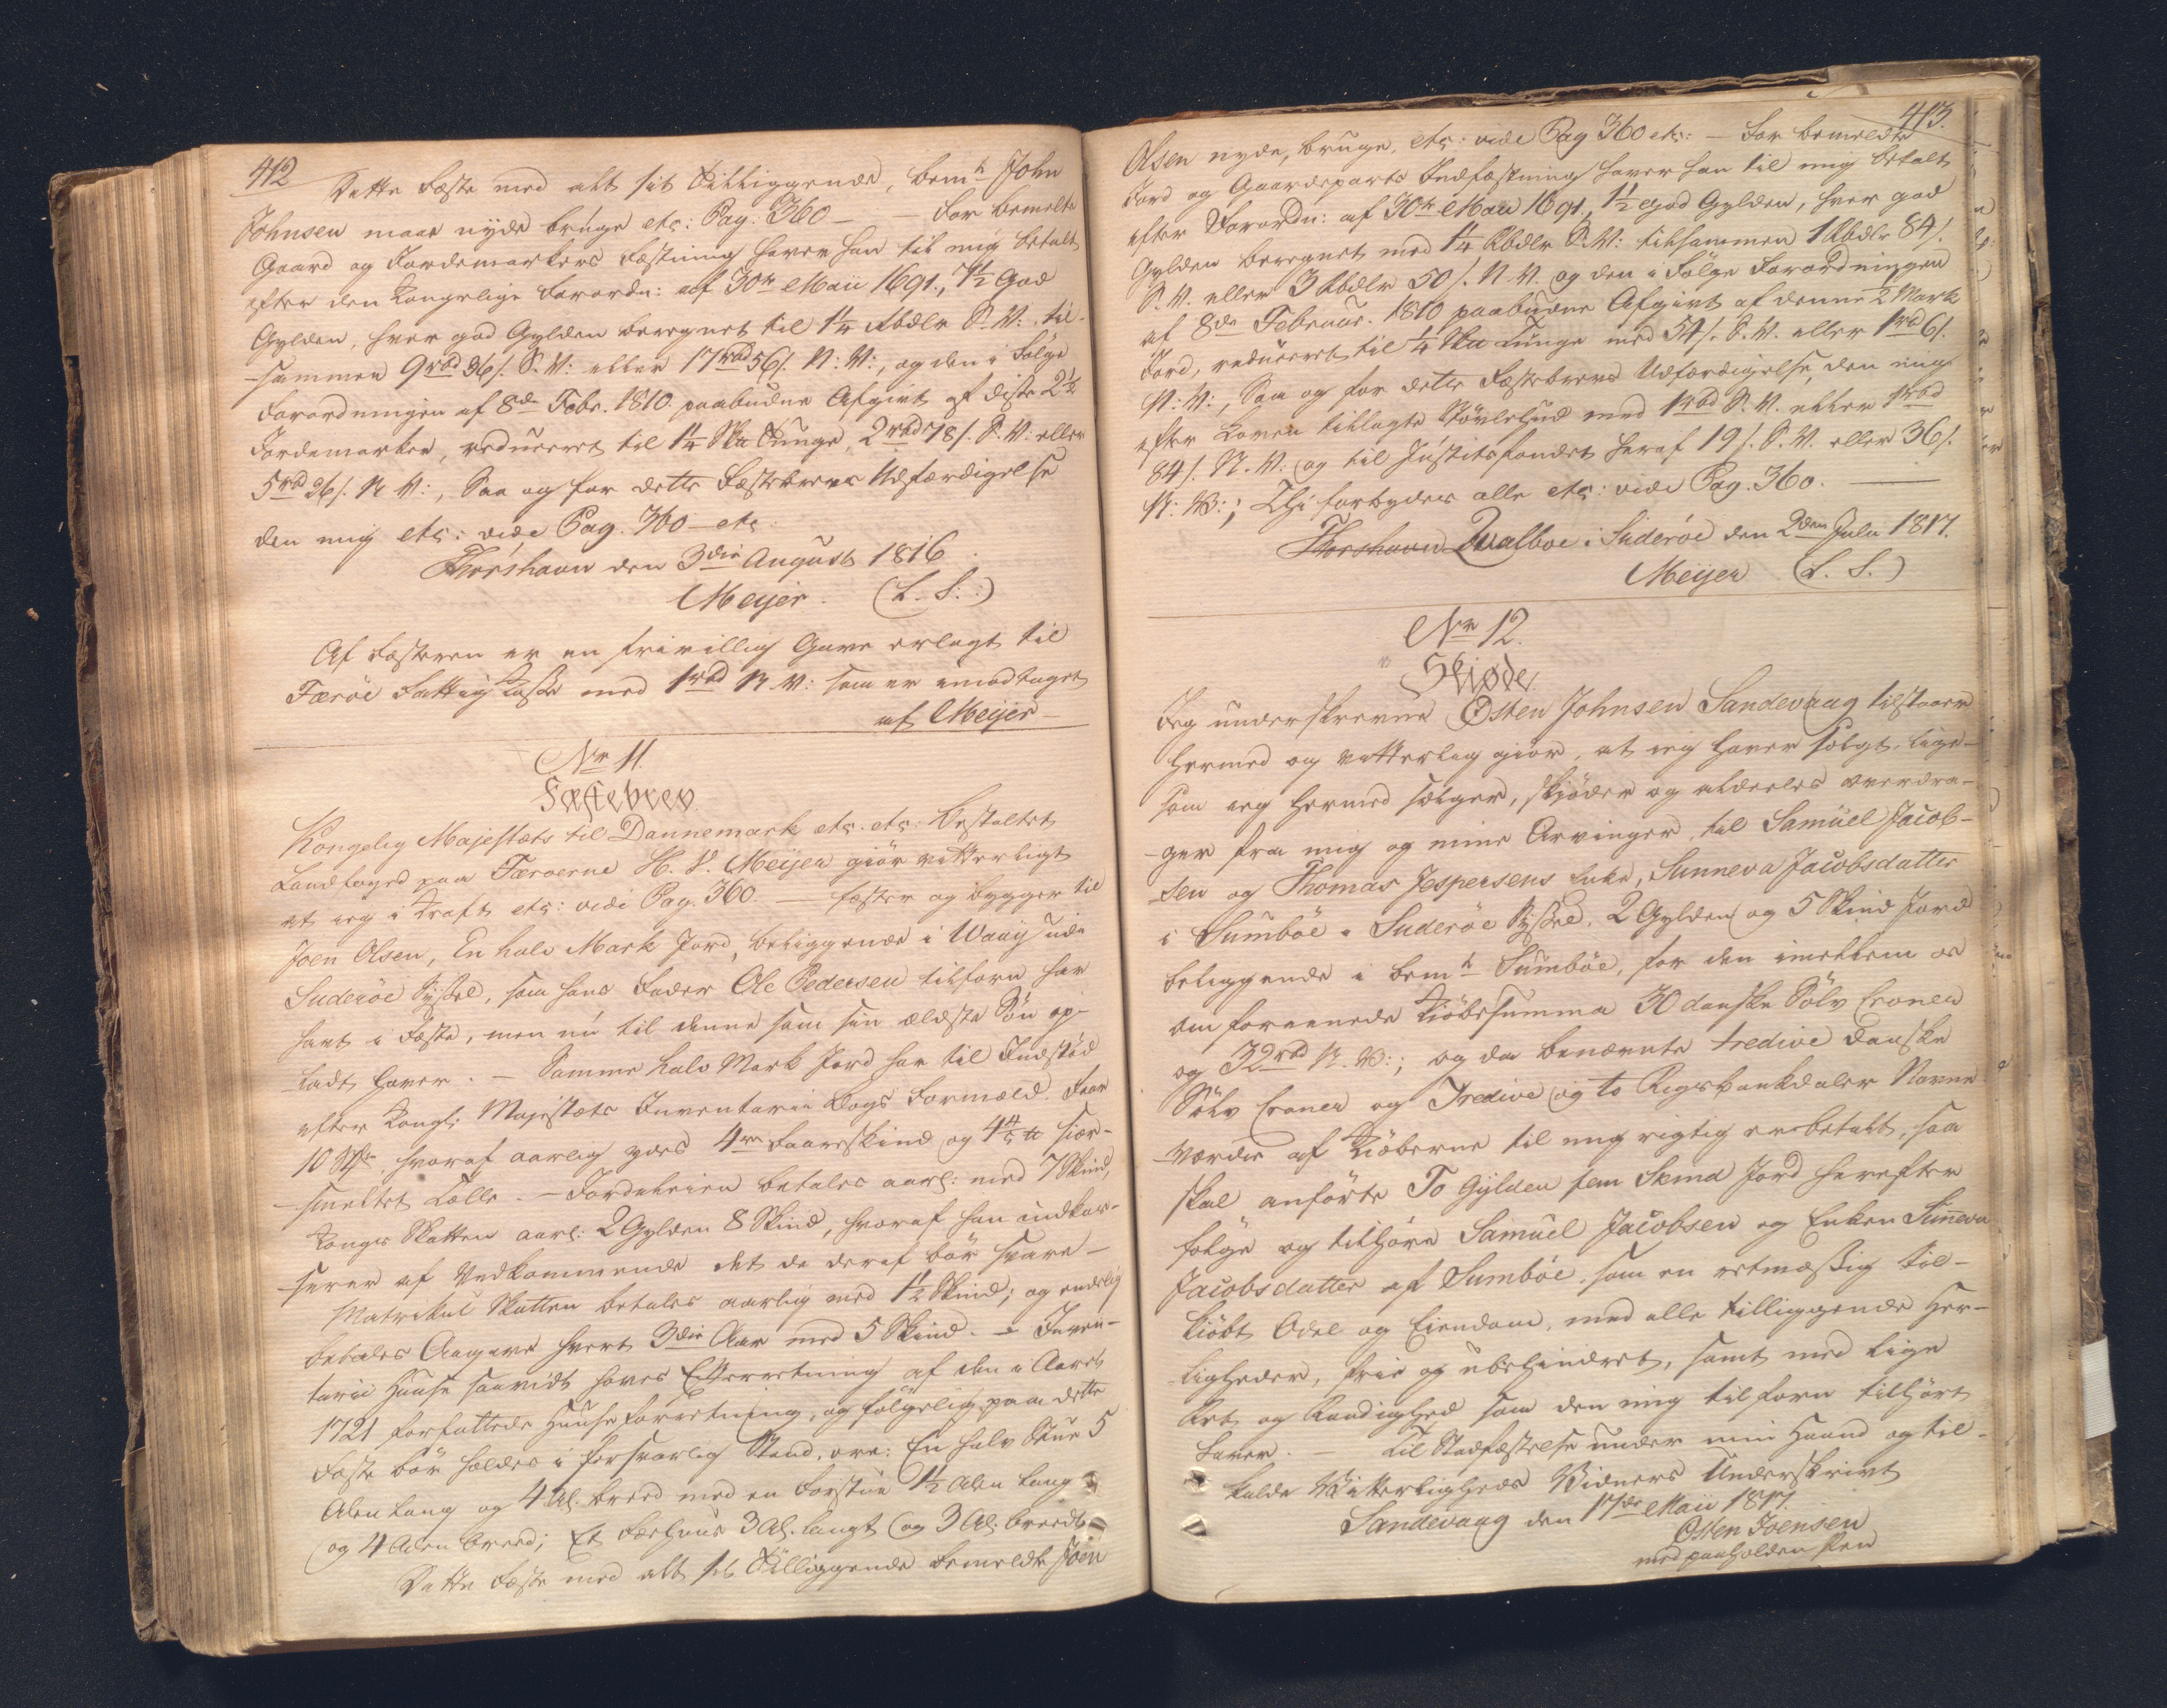 412
Dette Fæste med alt sit Tilliggende, bemte John
Johnsen maae nyde bruge etc: Pag. 360 — — For bemelte
Gaard og Jordemarkers Fæstning haver han til mig betalt
efter den Kongelige Forordn: af 30te Maii 1691., 7½ God
Gylden, hver god Gylden beregnet til 1¼ Rbdlr S. V: til-
sammen 9rbd 36s. S. V: eller 17rbd 56s. N: V:, og den i Følge
Forordningen af 8de Febr. 1810. paabudne Afgivt af diste 2½
Jordemarker, reduceret til 1¼ Skr Tunge, 2rbd 78s. S. V: eller
5rbd 26s. N V:, Saa og for dette Fæstebrevs Udfærdigelse
den mig etc: vide Pag. 360 — etc.
Thorshavn den 3die August 1816.
Meijer. (L. S.:)
Af Fæsteren er en frivillig Gave erlagt til
Færøe Fattig Casse med 1rbd N. V: som er imodtaget
af Meijer —
No 11.
Fæstebrev.
Kongelig Majestæts til Dannemark etc. etc: bestalter
Landfoged paa Færoerne H. V. Meijer giør vitterligt
at ieg i Kraft etc: vide Pag. 360. — fæster og bygger til
Joen Olsen, En halv Mark Jord, beliggende i Waaij udi
Suderöe Syssel, som hans Fader Ole Pedersen tilforn har
havt i Fæste, men nu til denne som sin ældste Søn op-
ladt haver. — Samme halv Mark Jord har til Indstöd
efter Kongl: Majestæts Inventarii Bogs Formæld. Faar
10 Stkr, hvoraf aarlig ydes 4re Faareskind og 4 4/5 tt sier-
smeltet Tælle. — Jordeleien betales aarl: med 7 Skind,
Konge Skatten aarl: 2 Gylden 8 Skind, hvoraf han indkas-
serer af Vedkommende det de deraf bør svare —
Matrikul Skatten betales aarlig med 1½ Skind; og endelig
betales Aagave hvert 3die Aar med 5 Skind. — Inven-
tarii Huuse saavidt haves Efterretning af den i Aaret
1721 forfattede Huuse forretning, og følgelig paa dette
Fæste bør holdes i forsvarlig Stand, ere: En halv Stue 5
Alen lang og 4 Al. breed med en Forstue 1½ Alen lang
og 4 Alen breed; Et Fæehuus 3 Al. langt og 3 Al. breedt.
Dette Fæste med alt sit Tilliggende bemeldte Joen
413.
Olsen nyde, bruge, etc: vide Pag 360 etc: — For bemeldte
Jord og Gaardeparts Indfæstning haver han til mig betalt
efter Forordn: af 30te Maii 1691, 1½ God Gylden, hver god
Gylden beregnet med 1¼ Rbdlr S. V: tilsammen 1 Rbdlr 84s.
S. V. eller 3 Rbdlr 50s. N. V. og den i Følge Forordningen
af 8de Februar. 1810 paabudne Afgivt af denne ½ Mark
Jord, reduceret til ¼ Skr Tunge med 54s. S. V. eller 1rbd 6s.
N: V:, Saa og for dette Fæstebrevs Udfærdigelse, den mig
efter Loven tillagte Støvlehud med 1rbd S. V. eller 1rbd
84s. N. V: og til Justitsfondet heraf 19s. S. V. eller 36s.
N: V:; Thi forbydes alle etc: vide Pag. 360. —
Thorshavn Qvalboe i Suderöe den 2den Julii 1817.
Meijer (L. S.)
No 12.
Skiøde.
Jeg underskrevne Østen Johnsen Sandevaag tilstaaer
hermed og vitterlig giør, at ieg haver solgt, lige-
som ieg hermed sælger, skjøder og aldeeles overdra-
ger fra mig og mine Arvinger til Samüel Jacob-
sen og Thomas Jespersens Enke, Sunneva Jacobsdatter
i Sumböe i Suderöe Syssel. 2 Gylden og 5 Skind Jord
beliggende i bemte Sumböe, for den imellem os
om foreenede Kiøbesumma 30 danske Sölv Croner
og 32rbd N. V:; og da benævnte tredive Danske
Sölv Croner og Tredive og to Rigsbankdaler Navne
Værdie af Kiøberne til mig rigtig er betalt, saa
skal anførte To Gylden fem Skind Jord herefter
følge og tilhøre Samüel Jacobsen og Enken Sunneva
Jacobsdatter af Sumböe, som en retmæssig til-
kiøbt Odel og Eiendom, med alle tilliggende Her-
ligheder, frie og ubehindret, samt med lige
Ret og Raadighed som den mig tilforn tilhørt
haver. — Til Stadfæstelse under min Haand og til-
kaldte Vitterligheds Vidners Underskrivt
Sandevaag den 17de Maii 1817.
Østen Joensen
med paaholden Pen